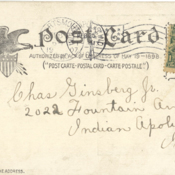 Post Card
AUTHORIZED BY ACT OF CONGRESS OF MAY 19-1898
("POST CARTE-POSTAL CARD-CARTE-POSTALE")
Chas Ginsberg Jr.
2022 Fountain Av
Indian Apolis